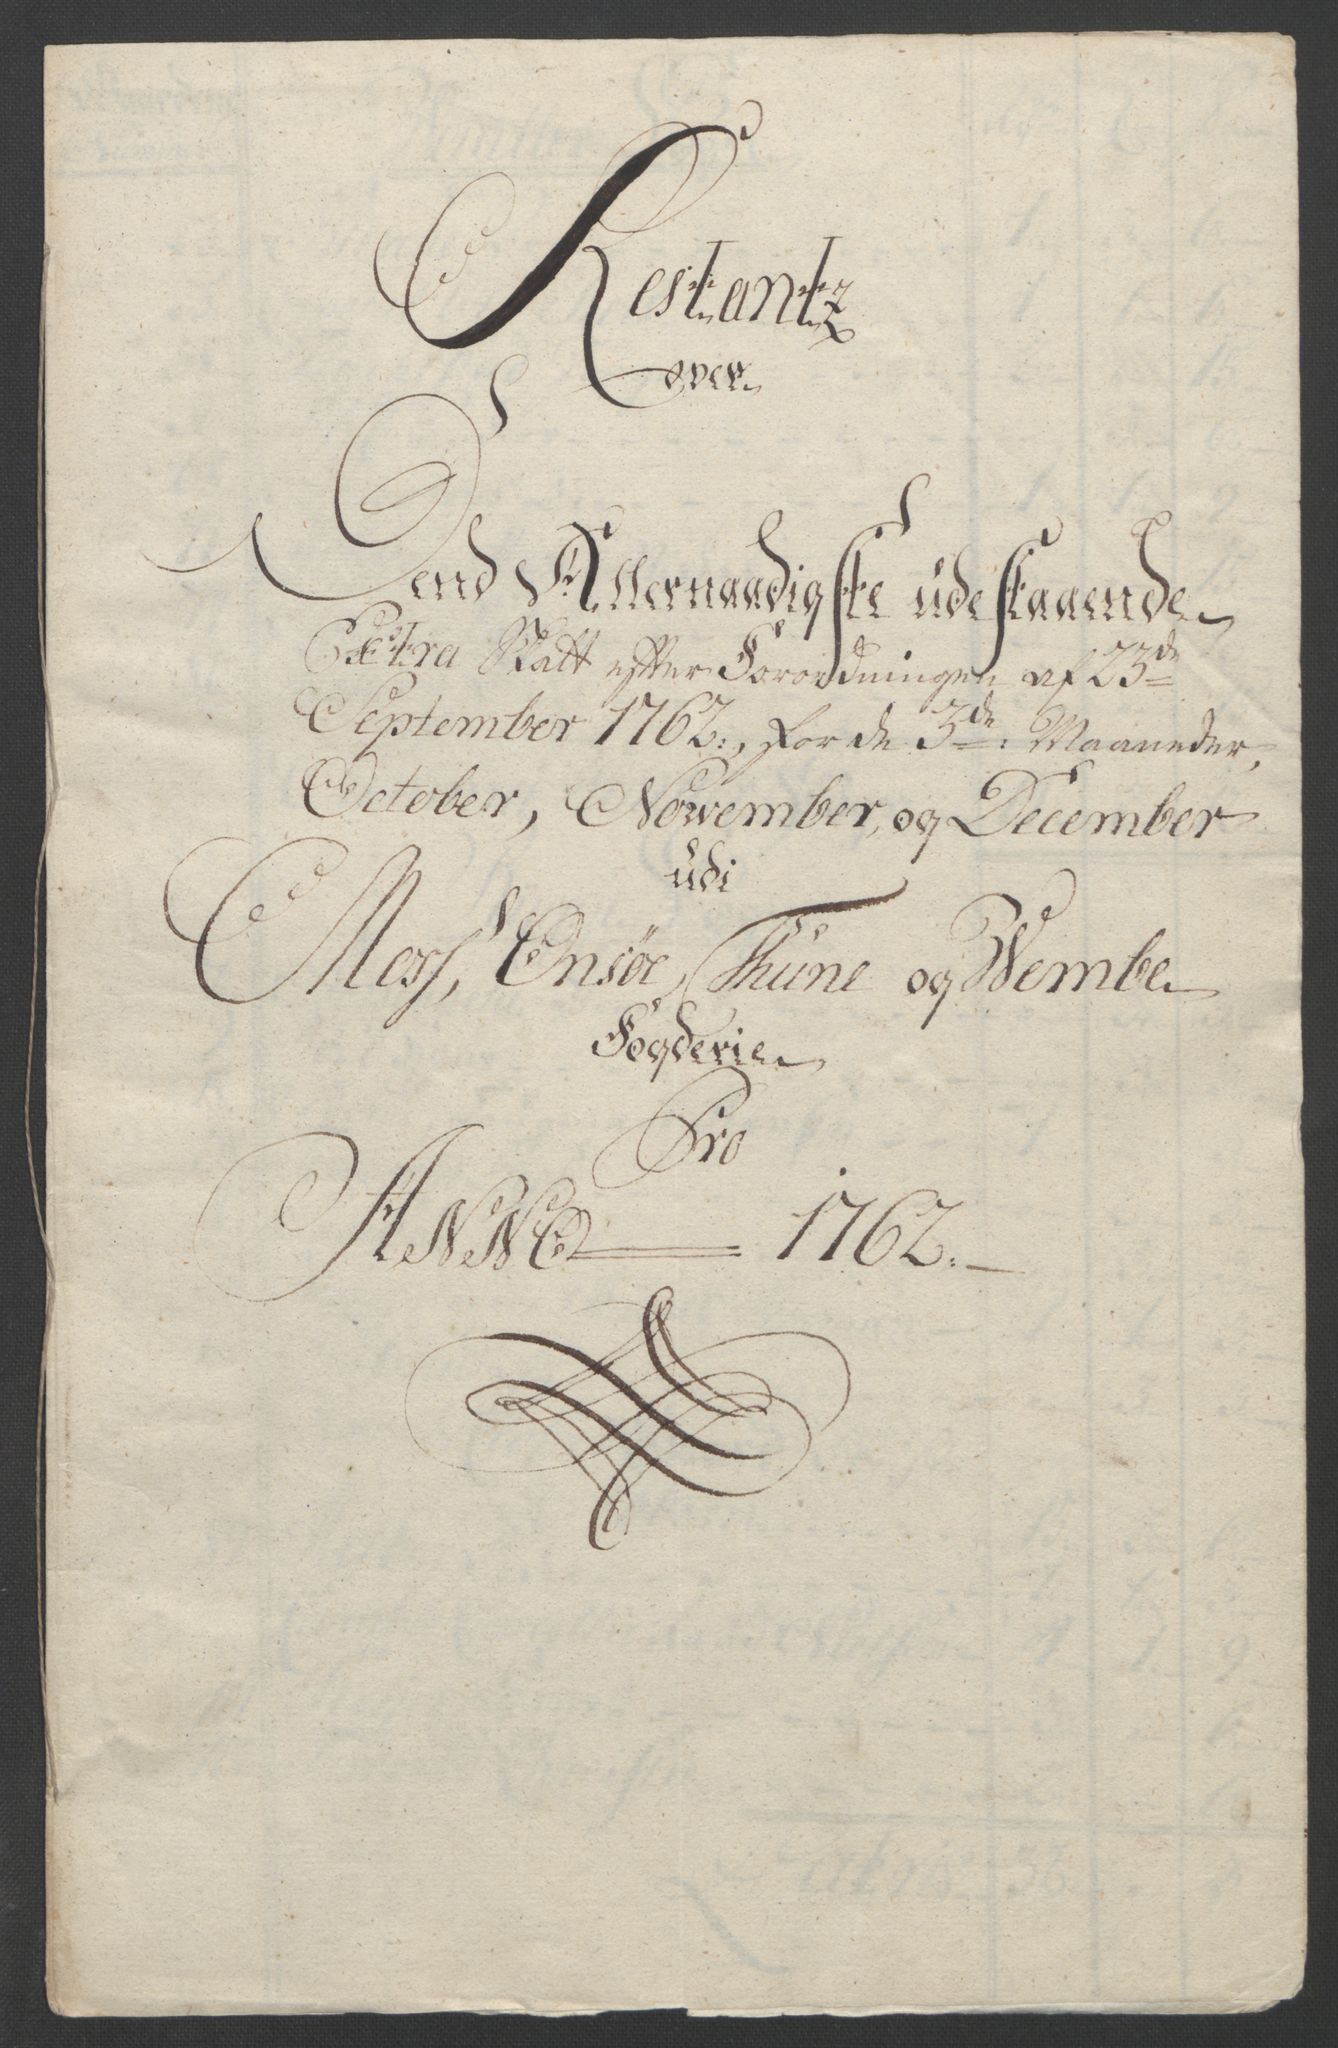 Restantz
over
Dend Allernaadigste udestaaende
Extra Skatt efter Forordningen af 23de
September 1762., for de 3de: Maaneder,
October, November, og December
udi
Moss, Onsöe, Thune og Wembe
Fogderie
Pro
ANNO 1762.